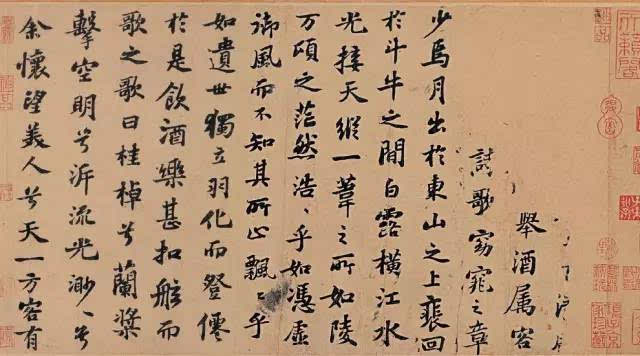 舉酒属客
詩歌窈窕之章
少焉月出於東山之上裵回
於斗牛之間白露橫江水
光接天縱一葦之所如陵
万頃之茫然浩〻乎如馮虛
御風而不知其所止飄〻乎
如遺世獨立羽化而登僊
於是飲酒樂甚扣舷而
歌之歌曰桂棹兮蘭槳
擊空明兮泝流光渺〻兮
余懷望美人兮天一方客有